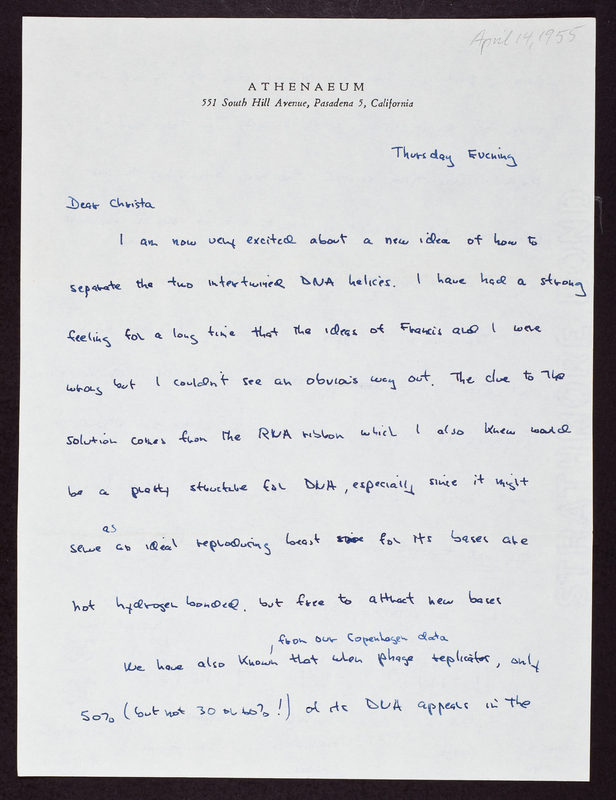 April 14, 1955
ATHENAEUM
551 South Hill Avenue, Pasadena 5, California
Thursday Evening
Dear Christa
I am now very excited about a new idea of how to
separate the two intertwined DNA helices. I have had a strong
feeling for a long time that the ideas of Francis and I were
wrong but I couldn't see an obvious way out. The clue to the
solution comes from the RNA ribbon which I also knew would
be a pretty structure for DNA, especially since it might
as
serve an ideal reproducing beast for its bases are
not hydrogen bonded, but free to attract new bases
, from our Copenhagen data
We have also known that when phage replicates, only
50% (but not 30 or 60% !) of its DNA appears in the